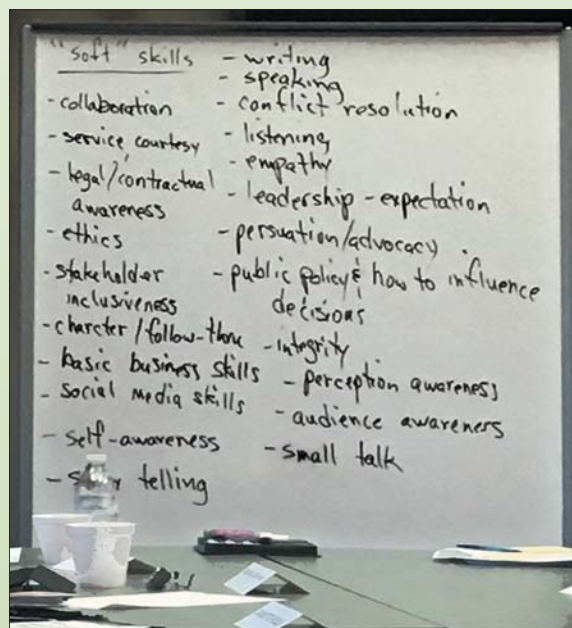 "soft" skills
- collaboration
- service courtesy
- legal/contractual
awareness
- ethics
- stakeholder
inclusiveness
- charcter / follow-thru
- basic business skills
- social media skills
- self-awareness
- telling
- writing
- speaking
- conflict resolution
- listening
- empathy
- leadership - expectation
- persuation/advocacy
- public policy & how to influence
decisions
- integrity
- perception awareness
- audience awareness
- small talk